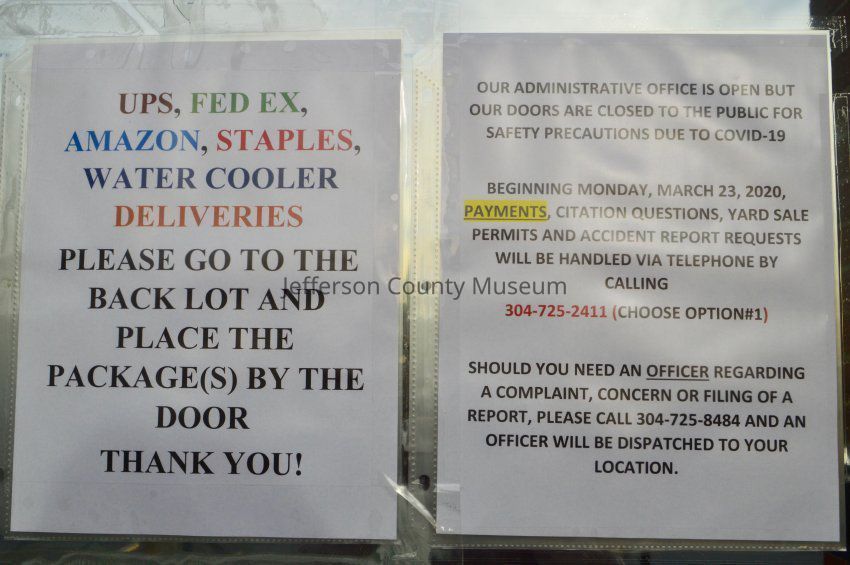 UPS, FED EX,
AMAZON, STAPLES,
WATER COOLER
DELIVERIES
PLEASE GO TO THE
BACK LOT AND
PLACE THE
PACKAGE(S) BY THE
DOOR
THANK YOU!
OUR ADMINISTRATIVE OFFICE IS OPEN BUT
OUR DOORS ARE CLOSED TO THE PUBLIC FOR
SAFETY PRECAUTIONS DUE TO COVID-19
BEGINNING MONDAY, MARCH 23, 2020,
PAYMENTS, CITATION QUESTIONS, YARD SALE
PERMITS AND ACCIDENT REPORT REQUESTS
WILL BE HANDLED VIA TELEPHONE BY
CALLING
304-725-2411 (CHOOSE OPTION#1)
SHOULD YOU NEED AN OFFICER REGARDING
A COMPLAINT, CONCERN OR FILING OF A
REPORT, PLEASE CALL 304-725-8484 AND AN
OFFICER WILL BE DISPATCHED TO YOUR
LOCATION.
Jefferson County Museum